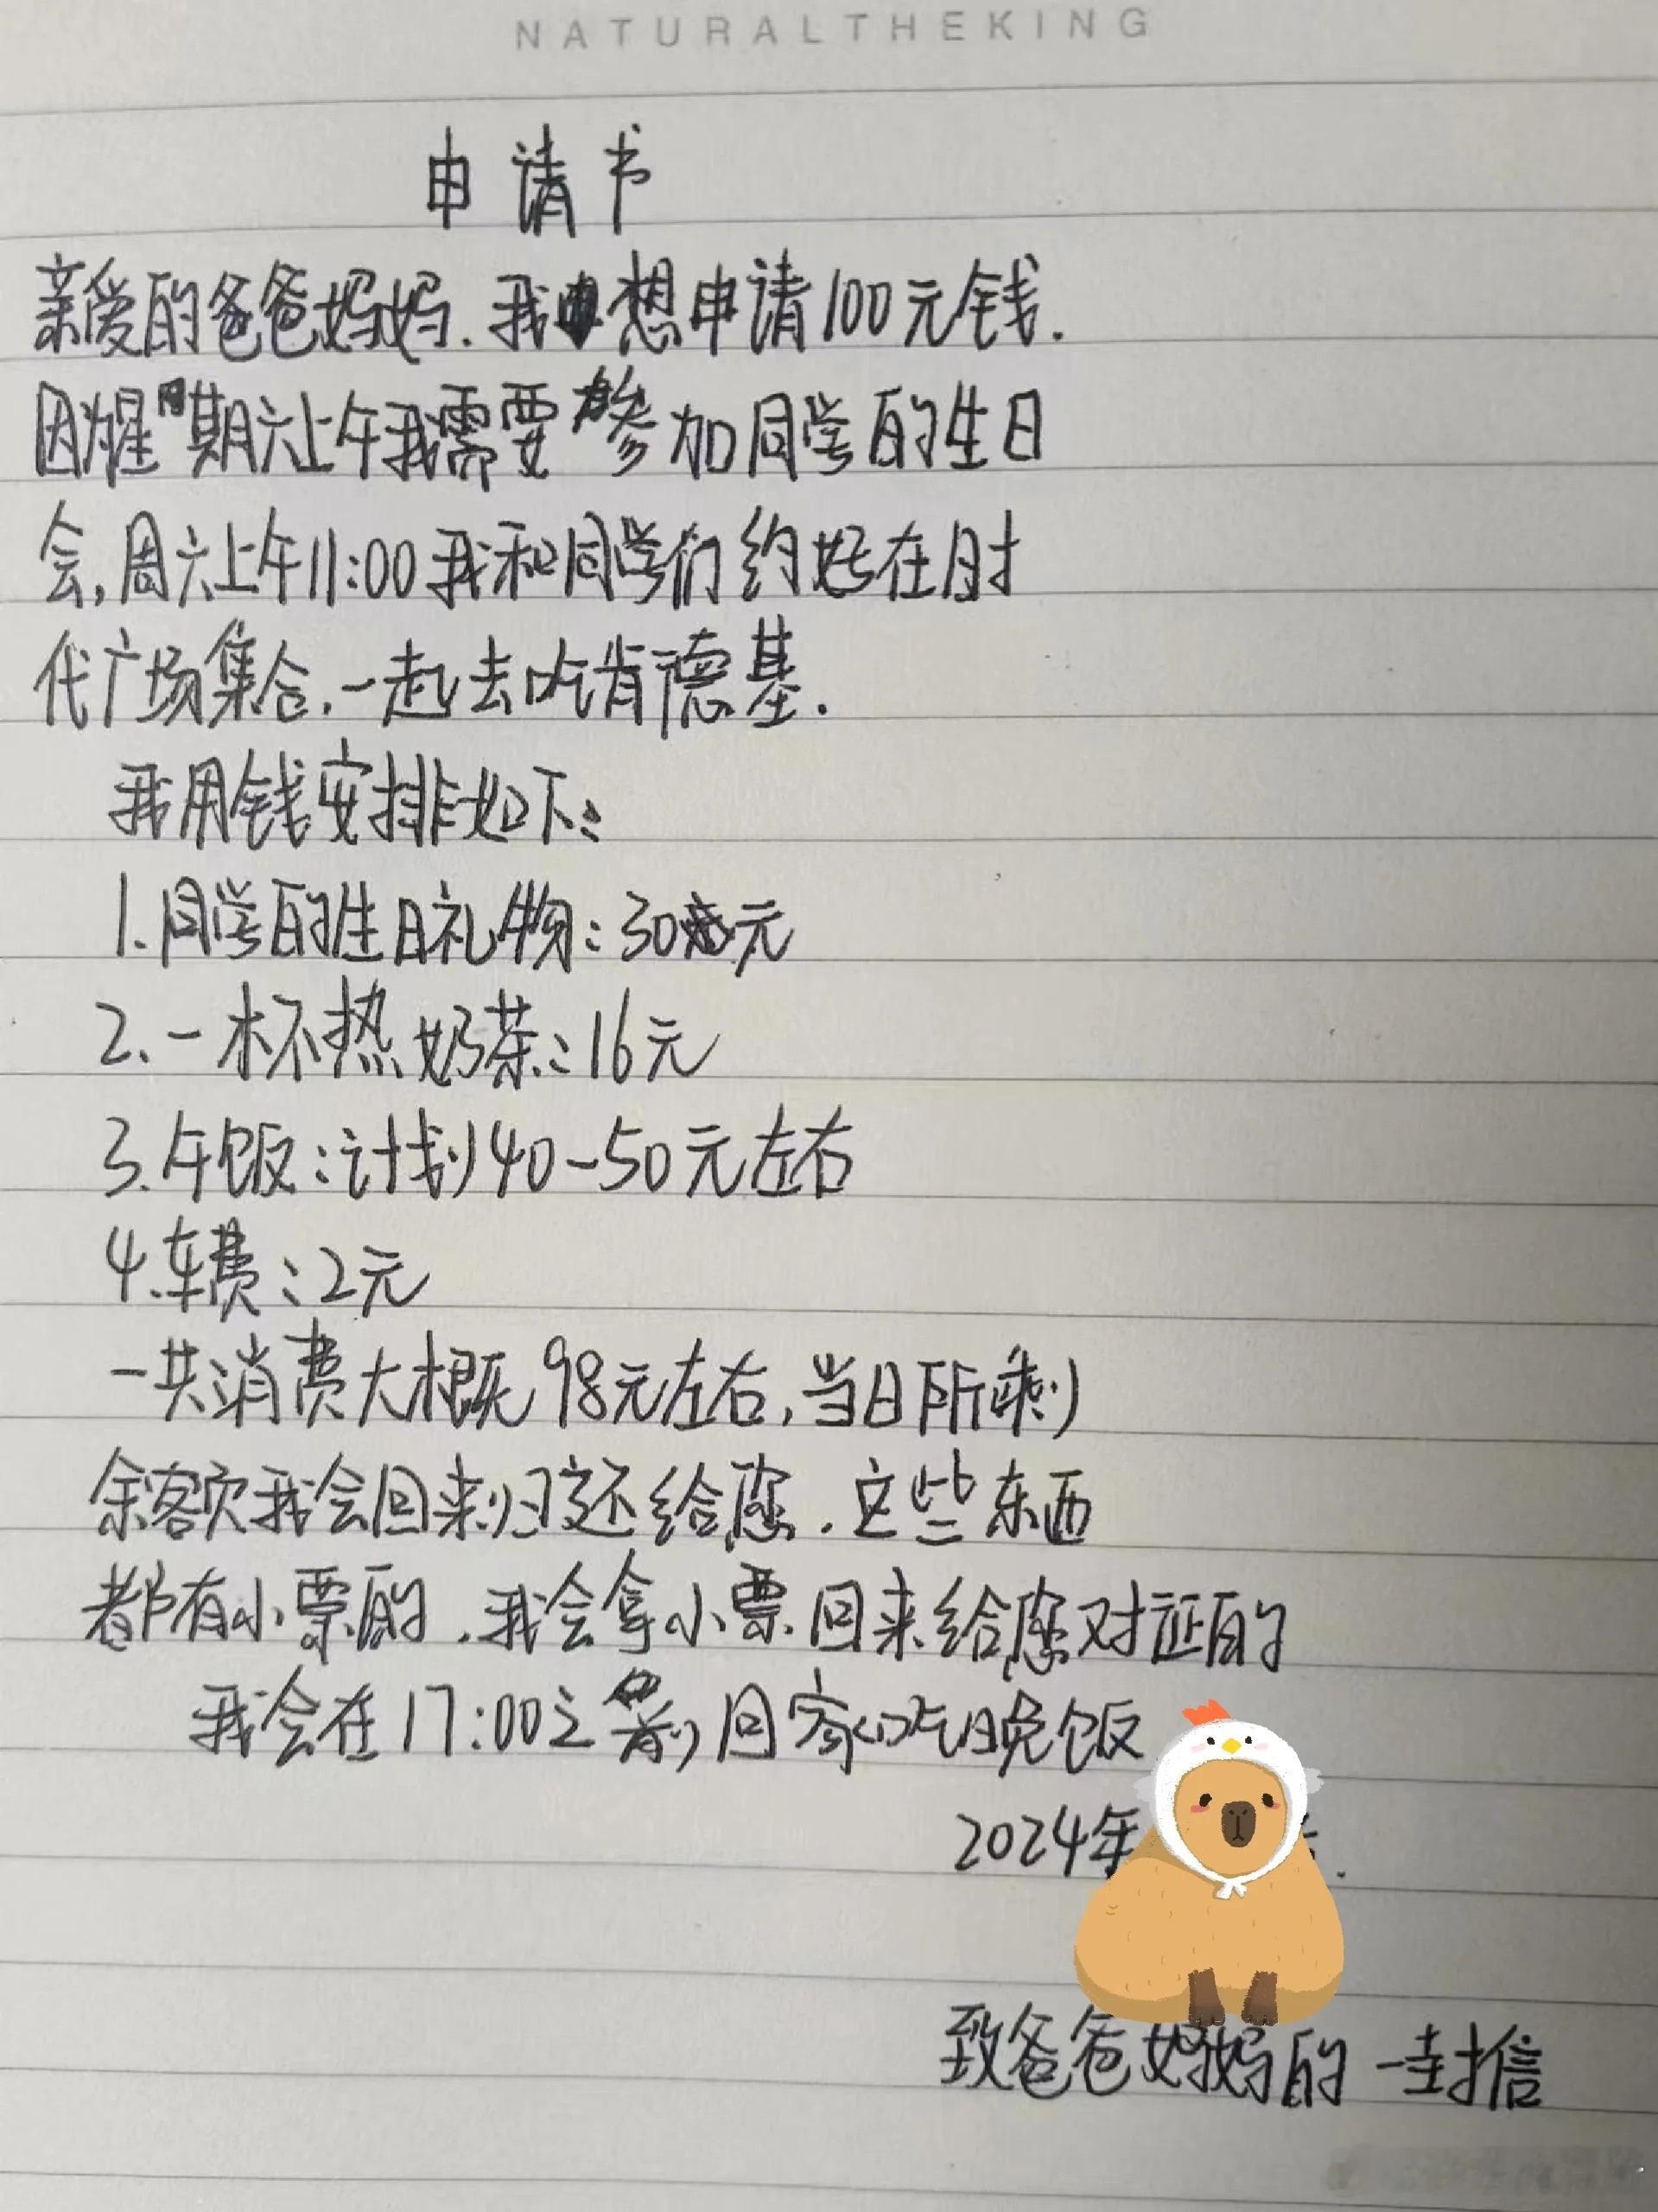 NATURALTHEKING
申请书
亲爱的爸爸妈妈.我想申请100元钱.
因为星期六上午我需要参加同学的生日
会,周六上午11:00我和同学们约好在时
代广场集合.一起去吃肯德基.
我用钱安排如下:
1.同学的生日礼物:30元
2.一杯热奶茶:16元
3.午饭:计划40-50元左右
4.车费:2元
一共消费大概98元左右,当日所剩
余额我会回来归还给您.这些东西
都有小票的.我会拿小票回来给您对证的
我会在17:00之前回家吃晚饭
2024年
致爸爸妈妈的一封信